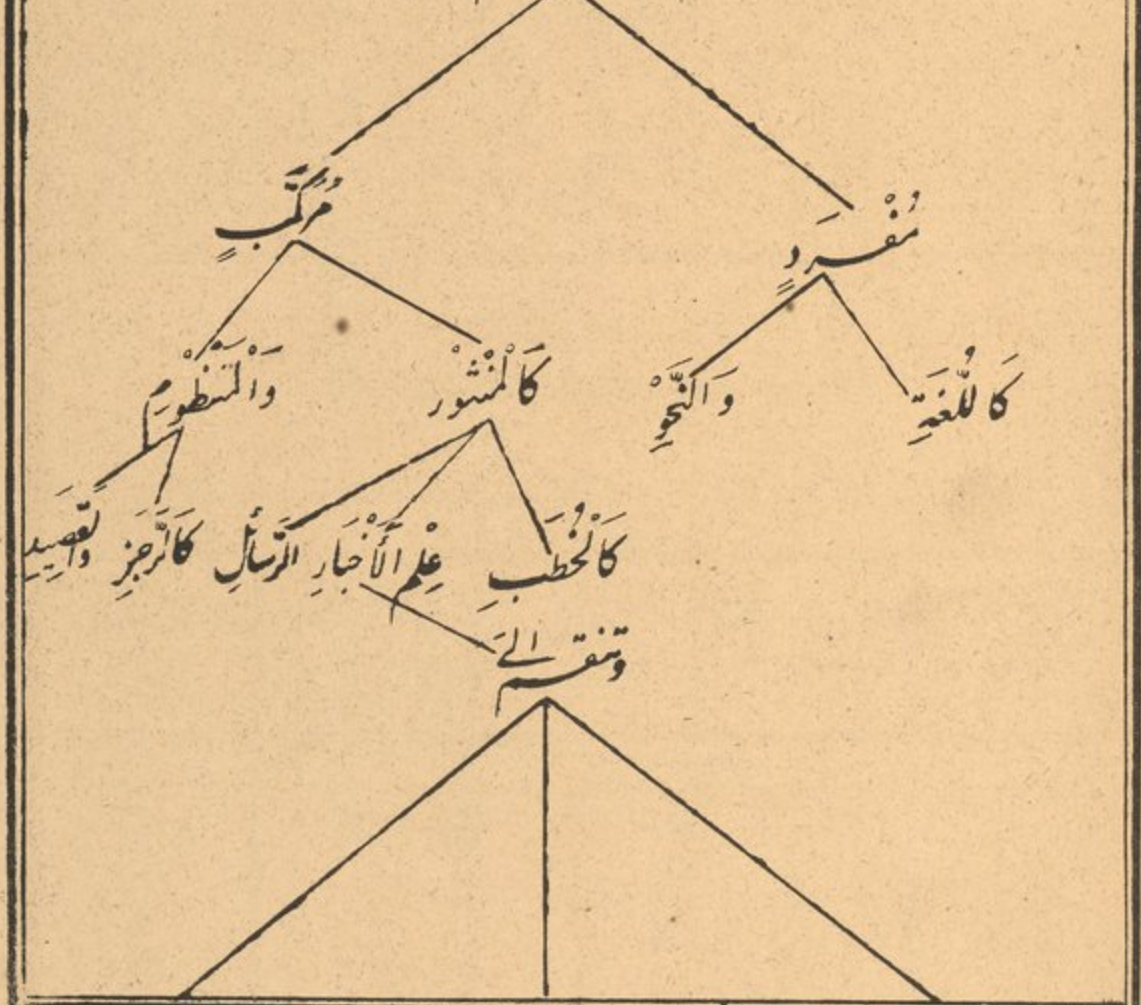 مُفْرَدٍ مُرَكَّبٍ
كَاللُّغَةِ وَالنَّحْوِ كَالْمَنْثُوْر وَالْمَنْظُوْمِ
كَالْخُطَبِ عِلْمِ الْأَخْبَارِ الرَّسَائِلِ كَالرَّجَزِ وَالْقَصِيدِ
وتنقسم الىَ